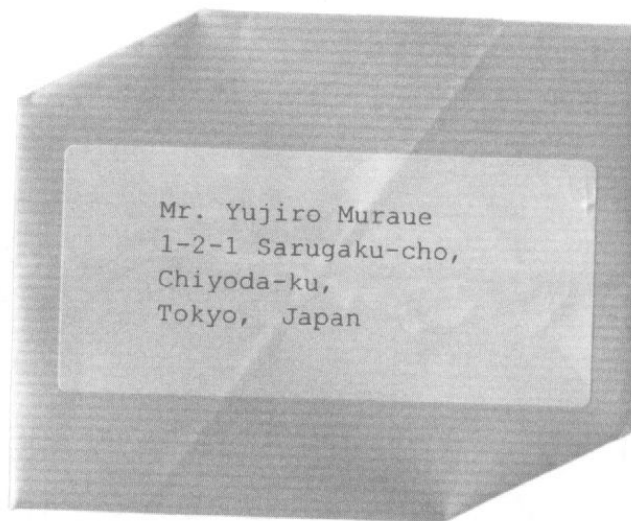 Mr. Yujiro Muraue
1-2-1 Sarugaku-cho,
Chiyoda-ku,
Tokyo, Japan